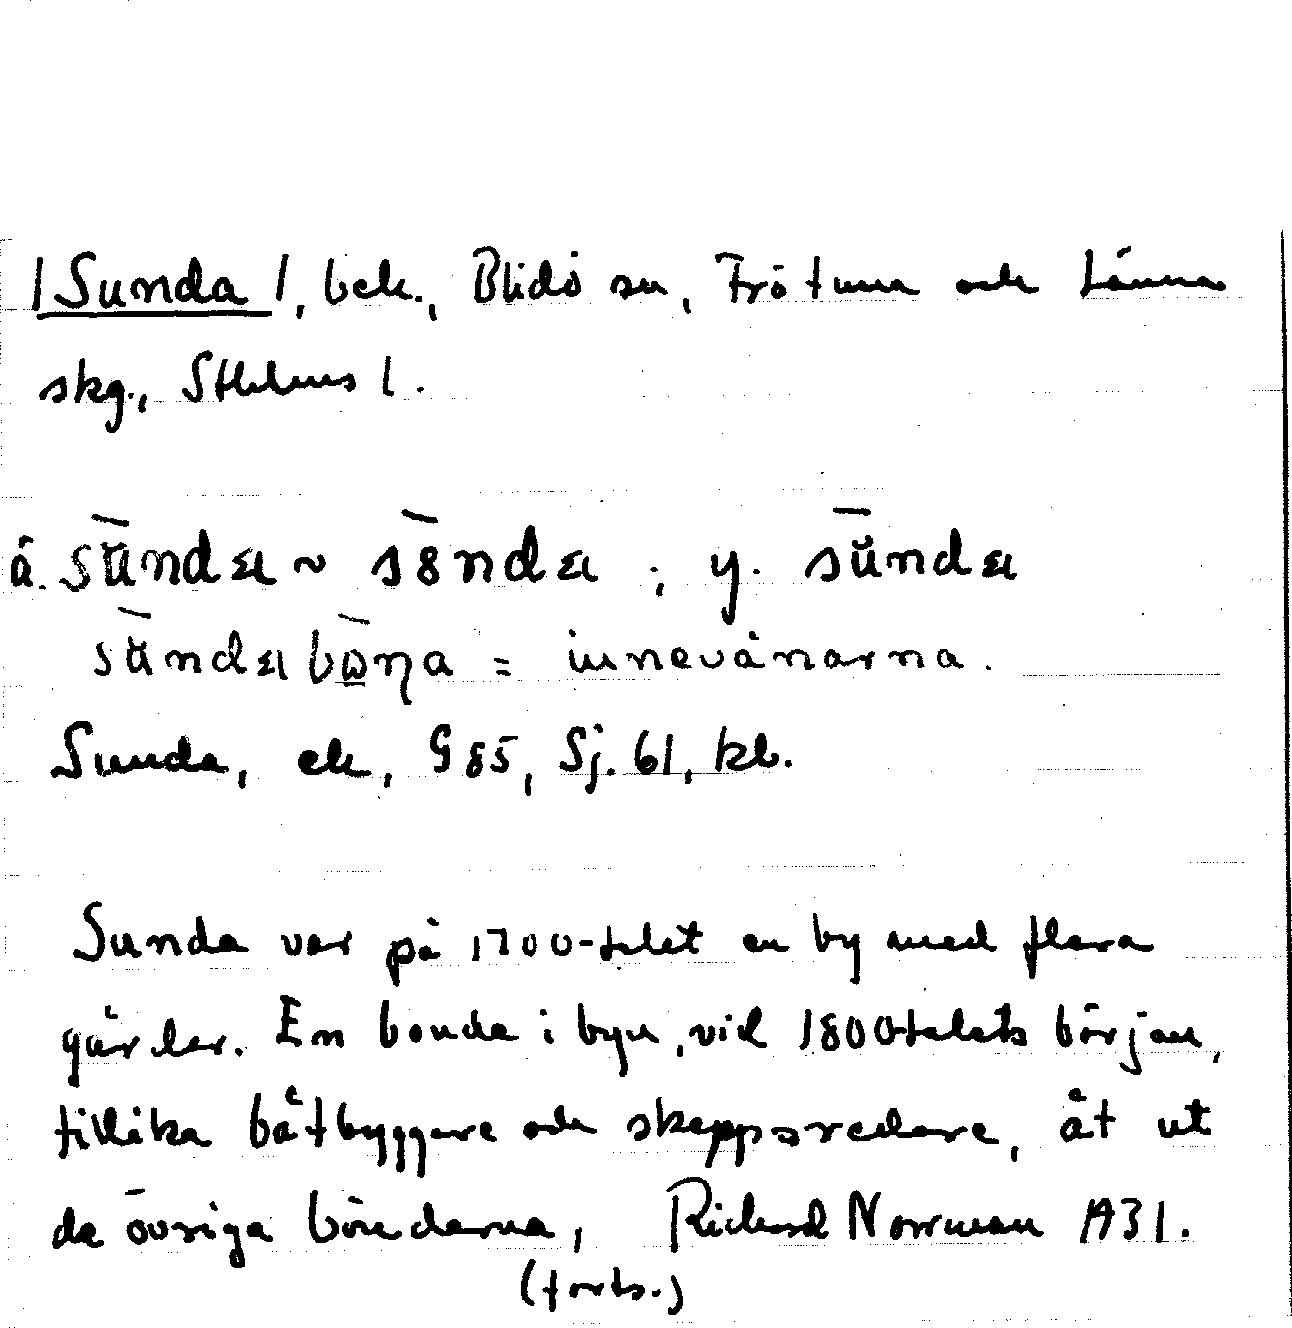 /Sunda/, bek., Blidö sn, Frötuna och Länna
skg., Sthlms l.
ä. sŭndaı ~ sɵndaı ; y. sŭndaı
sŭndaıbωŋa = innevånarna.
Sunda, ek, G85, Sj. 61, kb.
Sunda var på 1700-talet en by med flera
gårdar. En bonde i byn, vid 1800talets början,
tillika båtbyggare och skeppsredare, åt ut
de övriga bönderna, Richard Norrman 1931.
(forts.)